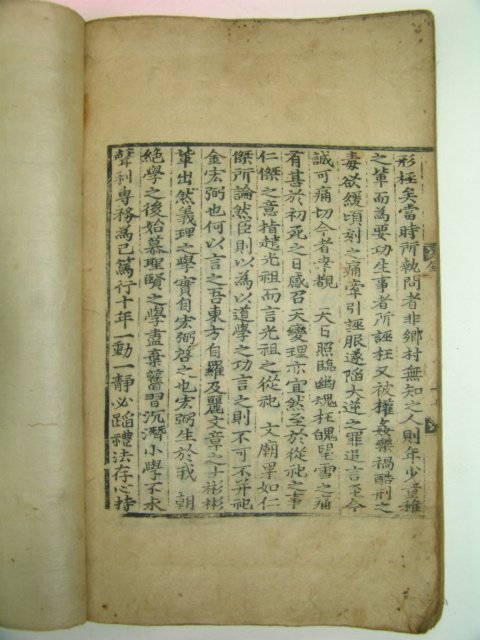 形枉矣當時所執問者非鄉村無知之人則年少童稚
之輩而為要功生事者所誣枉又被權姦樂禍酷刑之
毒欲緩頃刻之痛牽引誣服遂陷大逆之罪追言至今
誠可痛切今者幸覩 天日照臨幽魂枉魄望雪之痛
有甚於初死之日感召天變理亦宜然至於從祀之事
仁傑之意指趙光祖而言光祖之從祀 文廟果如仁
傑所論然臣則以為以道學之功言之則不可不并祀
金宏弼也何以言之吾東方自羅及麗文章之士彬彬
輩出然義理之學實自宏弼啓之也宏弼生於我 朝
絶學之後始慕聖賢之學盡棄舊習沉潛小學不求
聲利專務為己篤行十年一動一靜必蹈禮法存心持